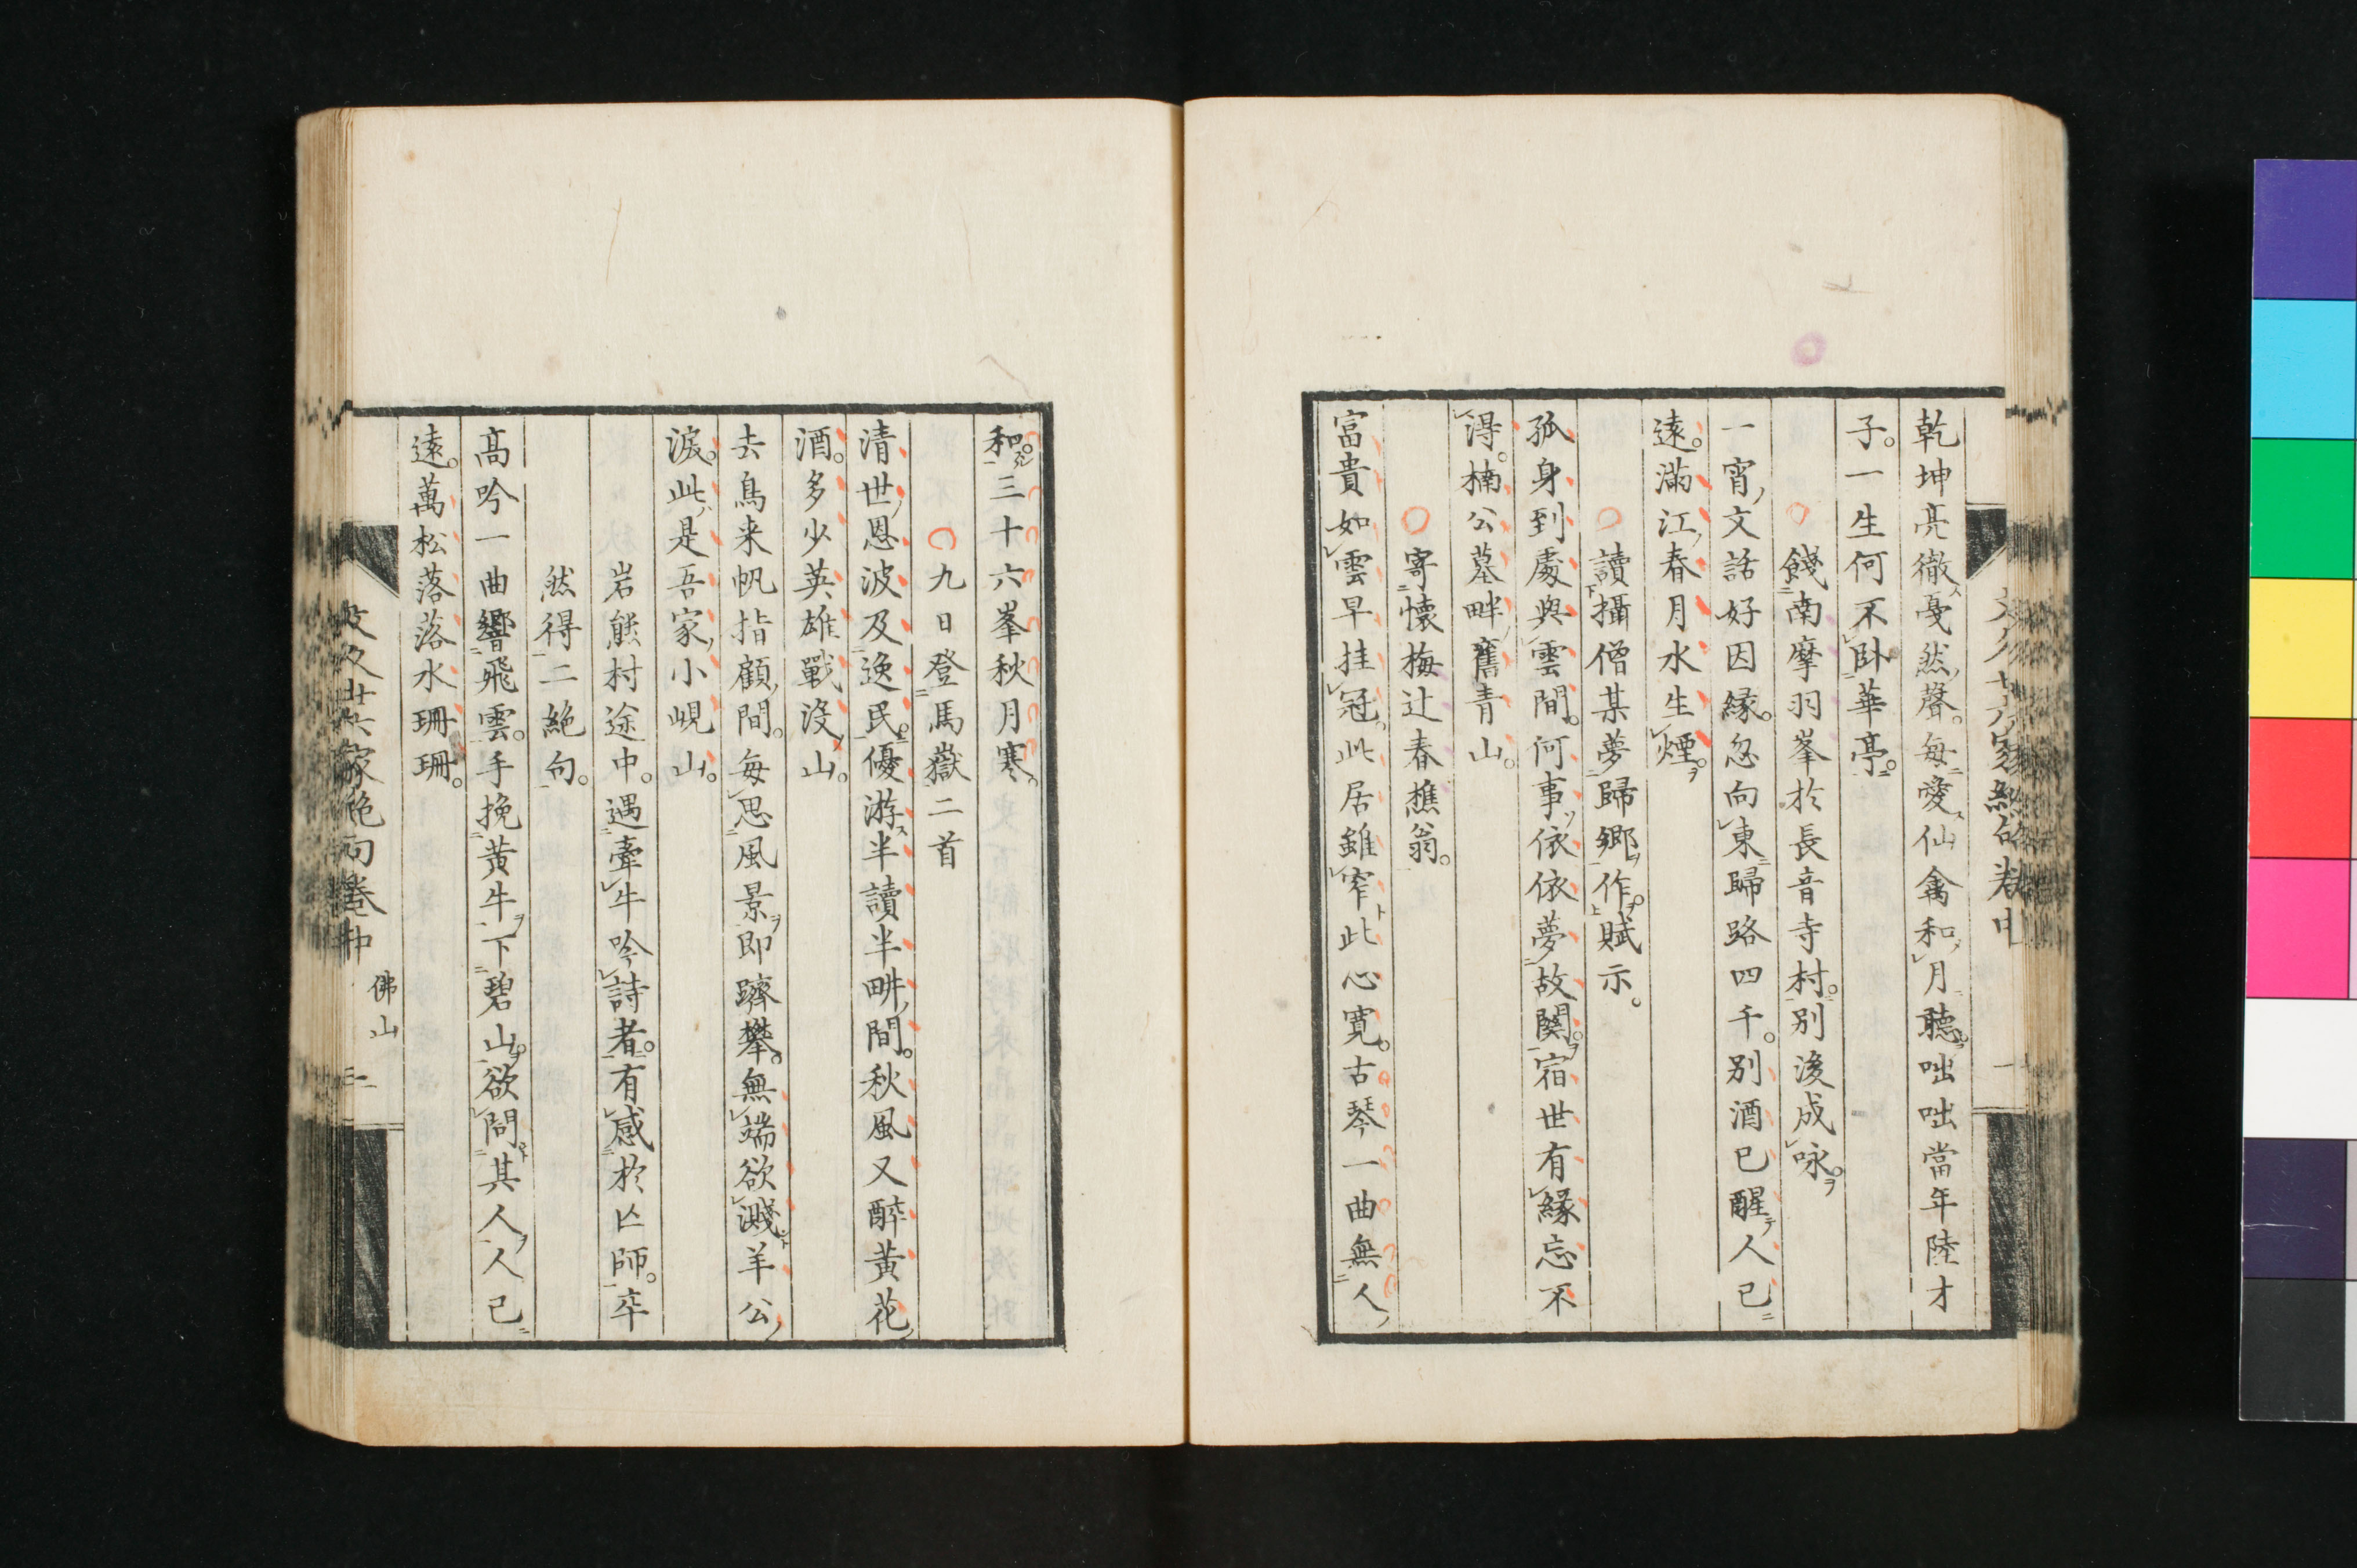 乾坤亮徹戞然聲。每愛仙禽和月聽。咄咄當年陸才
子。一生何不臥華亭。
餞南摩羽峯於長音寺村。別後成咏。
一宵文話好因緣。忽向東歸路四千。別酒已醒人已
遠。滿江春月水生煙。
讀攝僧某夢歸鄉作。賦示。
孤身到處與雲間。何事依依夢故関。宿世有緣忘不
得。楠公墓畔舊青山。
寄懷梅辻春樵翁。
富貴如雲早挂冠。此居雖窄此心寬。古琴一曲無人
和。三十六峯秋月寒。
九日登馬嶽二首
清世恩波及逸民。優游半讀半畊間。秋風又醉黃花
酒。多少英雄戰沒山。
去鳥来帆指顧間。每思風景即躋攀。無端欲濺羊公
淚。此是吾家小峴山。
岩熊村途中。遇牽牛吟詩者。有感於亡師。卒
然得二絕句。
高吟一曲響飛雲。手挽黃牛下碧山。欲問其人人已
遠。萬松落落水珊珊。
家絕句卷中
佛山
二